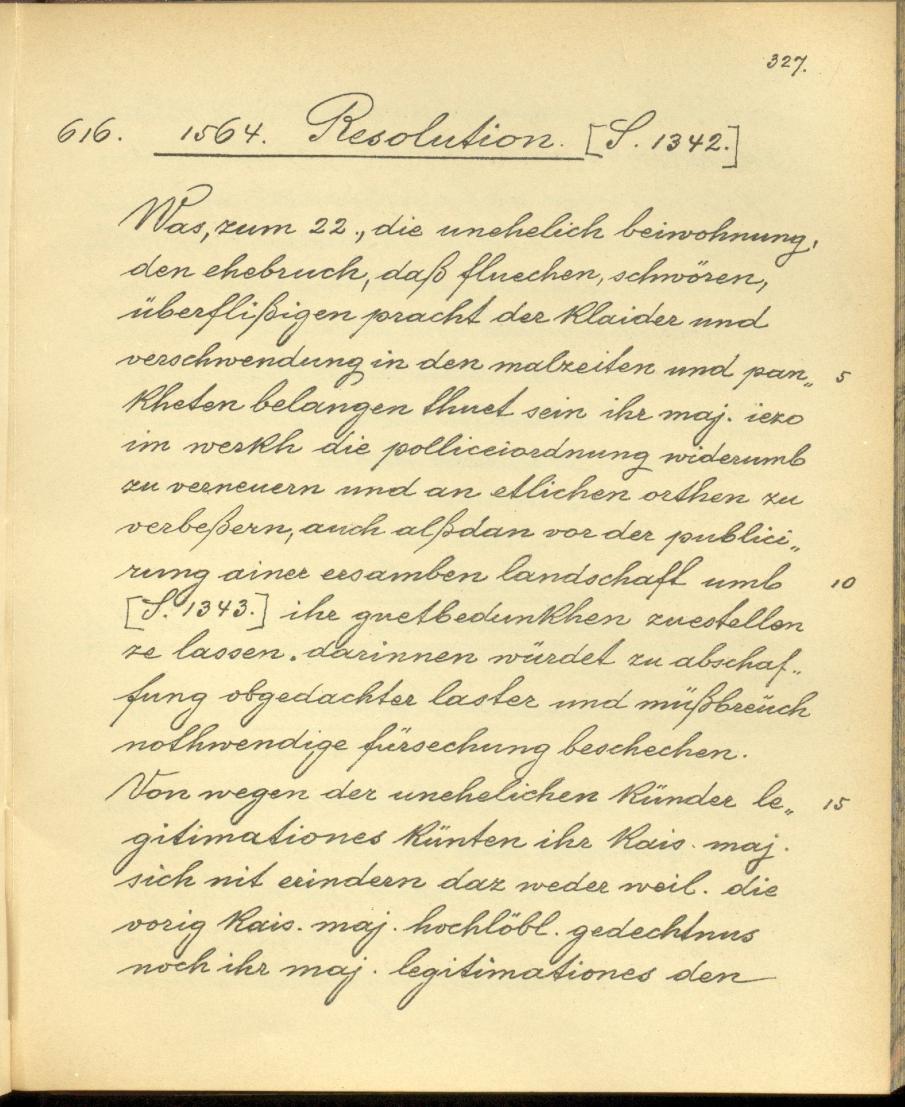 327.
616. 1564. Resolution. [S. 1342.]
Was, zum 22., die unehelich beiwohnung,
den ehebruch, daß fluechen, schwören,
überflißigen pracht der klaider und
verschwendung in den malzeiten und pan„ 5
kheten belangen thuet sein ihr maj. iezo
im werkh die polliceiordnung widerumb
zu verneuern und an etlichen orthen zu
verbeßern, auch alßdan vor der publici„
rung ainer ersamben landschaft umb 10
[S. 1343.] ihr guetbedunkhen zuestellen
ze lassen. darinnen würdet zu abschaf„
fung obgedachter laster und müßbreüch
nothwendige fürsechung beschechen.
Von wegen der unehelichen künder le„ 15
gitimationes künten ihr kais. maj.
sich nit erindern daz weder weil. die
vorig kais. maj. hochlöbl. gedechtnus
noch ihr maj. legitimationes den